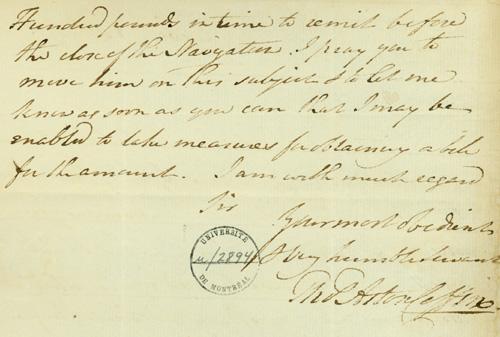 Hundred pounds in time to remit before
the close of the Navigation. I pray you to
move him on this subject & to let me
know as soon as you can that I may be
enabled to take measures for obtaining a bill
for the amount. I am with much regard
Sir
Your most obedient
& very humble servant
Thos Aston Coffin
UNIVERSITÉ
u/2894
DE MONTRÉAL